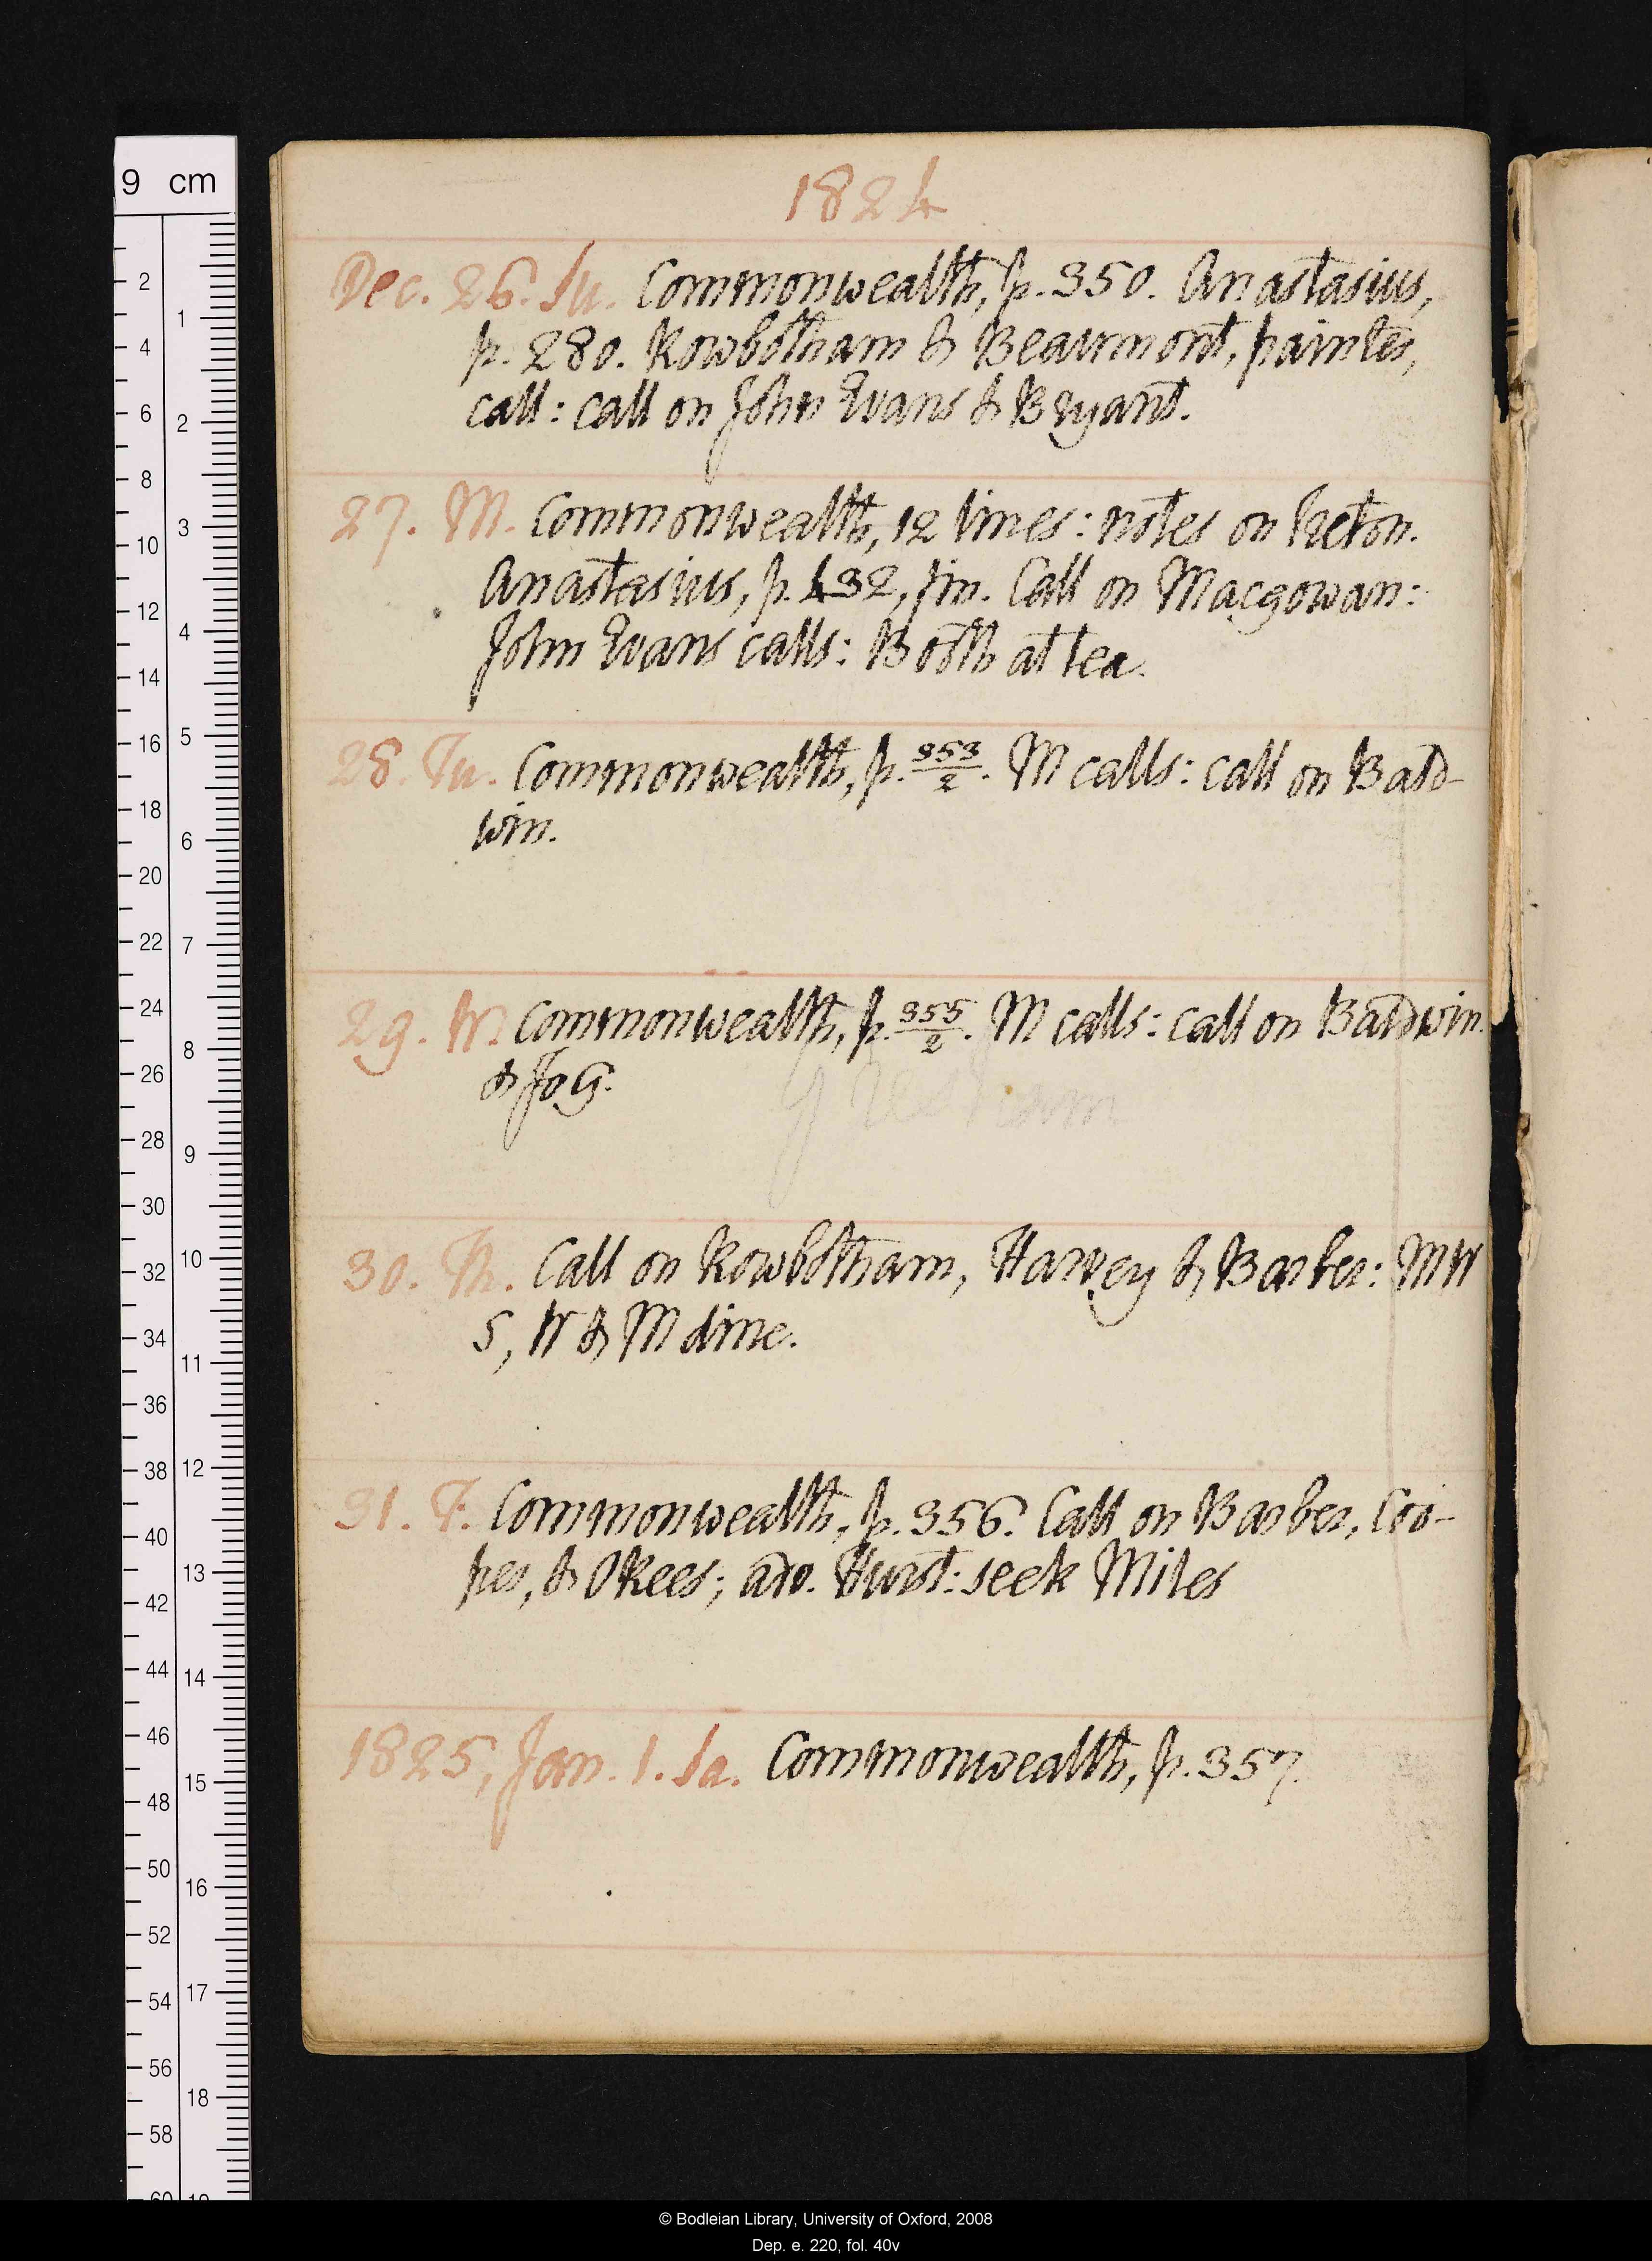 1824
Dec. 26. Su. Commonwealth, p. 350. Anastasius,
p. 280. Rowbotham & Beaumont, painter,
call: call on John Evans & Bryant.
27. M. Commonwealth, 12 lines: notes on Ireton.
Anastasius, p. 432, fin. Call on Macgowan:
John Evans calls: Booth at tea.
28. Tu. Commonwealth, p. 353/2. M calls: call on Bald-
win.
29. W. Commonwealth, p. 355/2. M calls: call on Baldwin
& Jo G.
30. Th. Call on Rowbotham, Harvey & Barber: MW
S, W & M dine.
31. F. Commonwealth, p. 356. Call on Barber, Coo-
per, & Rees; adv. Hurst: seek Miles
1825, Jan. 1. Sa. Commonwealth, p. 357.
9 cm
2
4
6
8
10
12
14
16
18
20
22
24
26
28
30
32
34
36
38
40
42
44
46
48
50
52
54
56
58
60
1
2
3
4
5
6
7
8
9
10
11
12
13
14
15
16
17
18
© Bodleian Library, University of Oxford, 2008
Dep. e. 220, fol. 40v